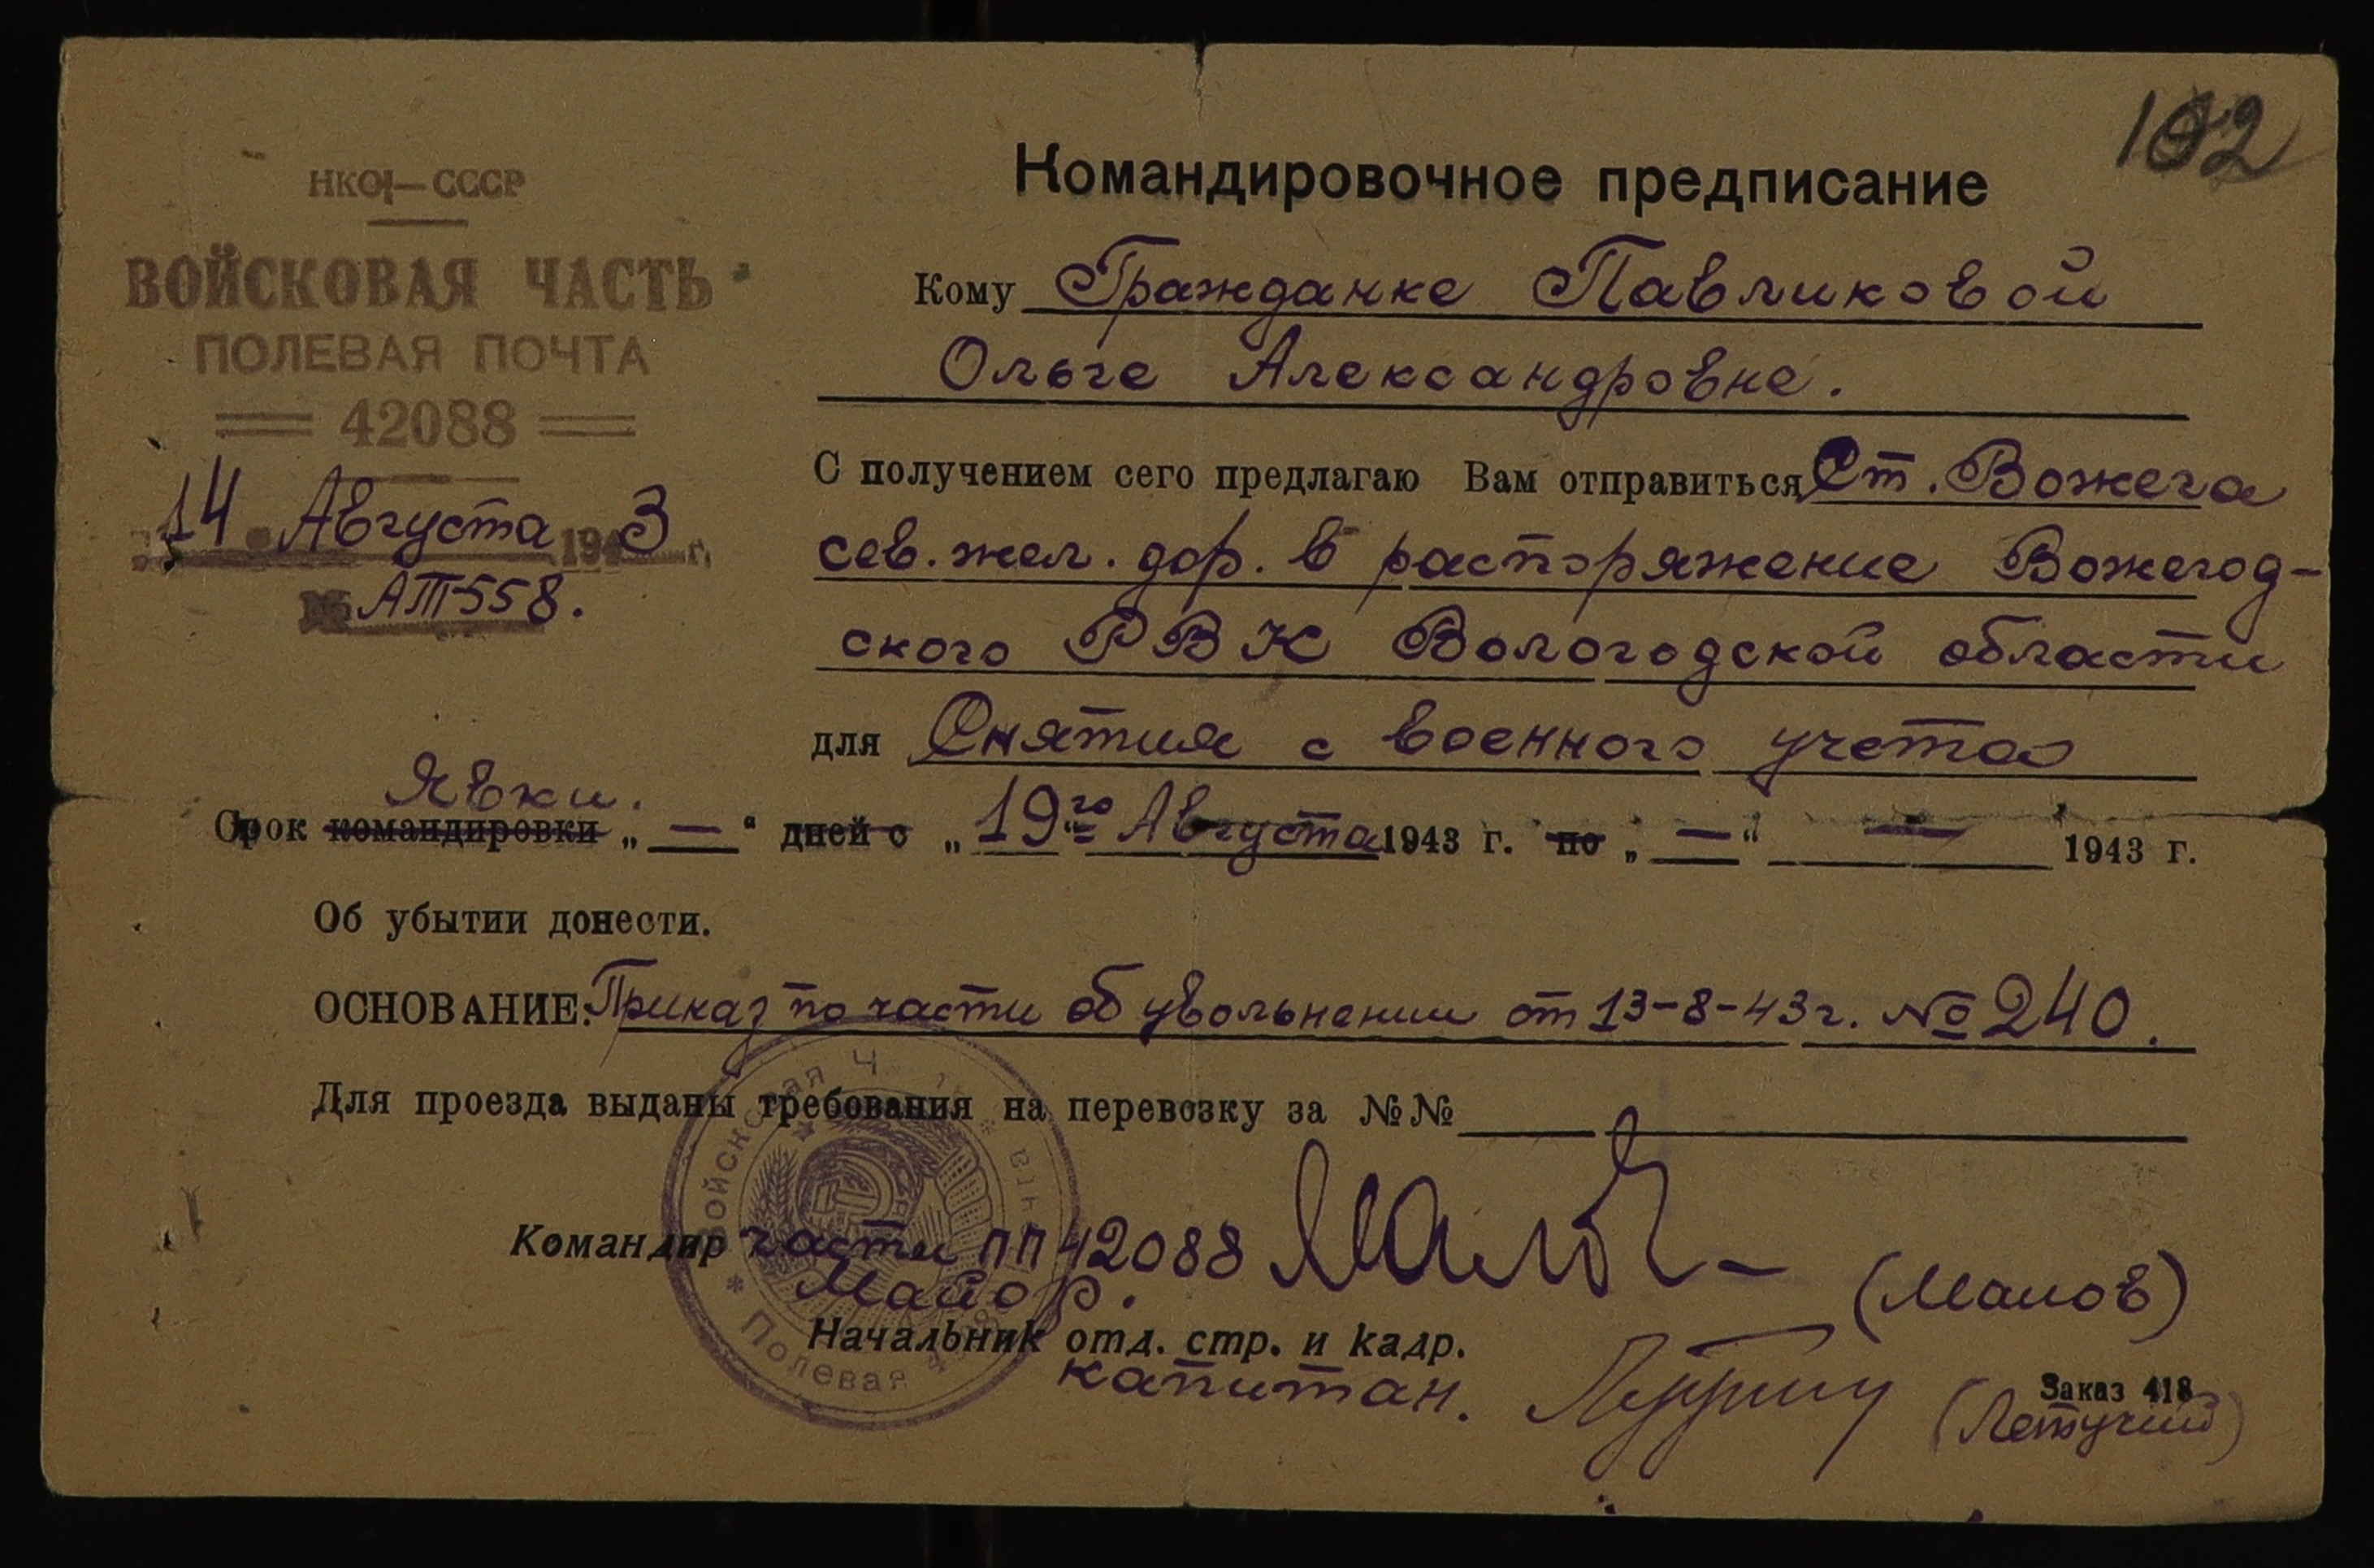 102
НКО — СССР
ВОЙСКОВАЯ ЧАСТЬ
ПОЛЕВАЯ ПОЧТА
42088
14 Августа 1943 г.
№ АТ-558.
Командировочное предписание
Кому Гражданке Павликовой
Ольге Александровне.
С получением сего предлагаю Вам отправиться Ст. Вожега
сев. жел. дор. в распоряжение Вожегод-
ского РВК Вологодской области
для Снятия с военного учета
Явки.
Срок командировки „ — “ дней с „ 19го “ Августа 1943 г. по „ — “ — 1943 г.
Об убытии донести.
ОСНОВАНИЕ: Приказ по части об увольнении от 13-8-43 г. № 240.
Для проезда выданы требования на перевозку за №№
Войсковая Ч
Полевая
Командир части ПП 42088 (Малов)
Майор.
Начальник отд. стр. и кадр.
капитан. (Летучий)
Заказ 418